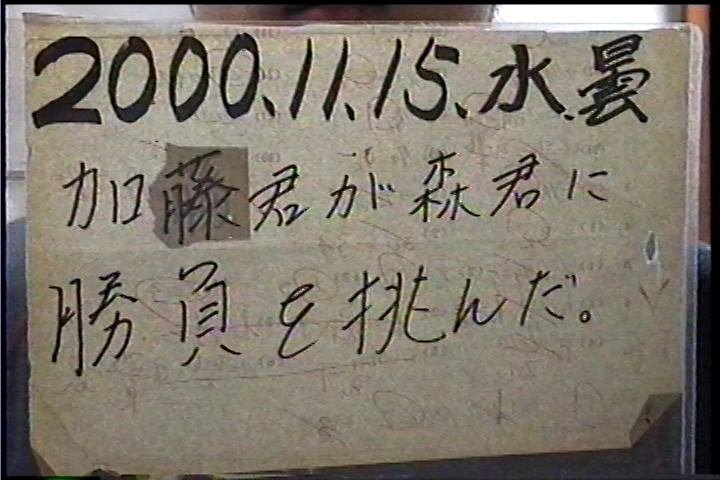 2000.11.15.水.曇
加藤君が森君に
勝負を挑んだ。